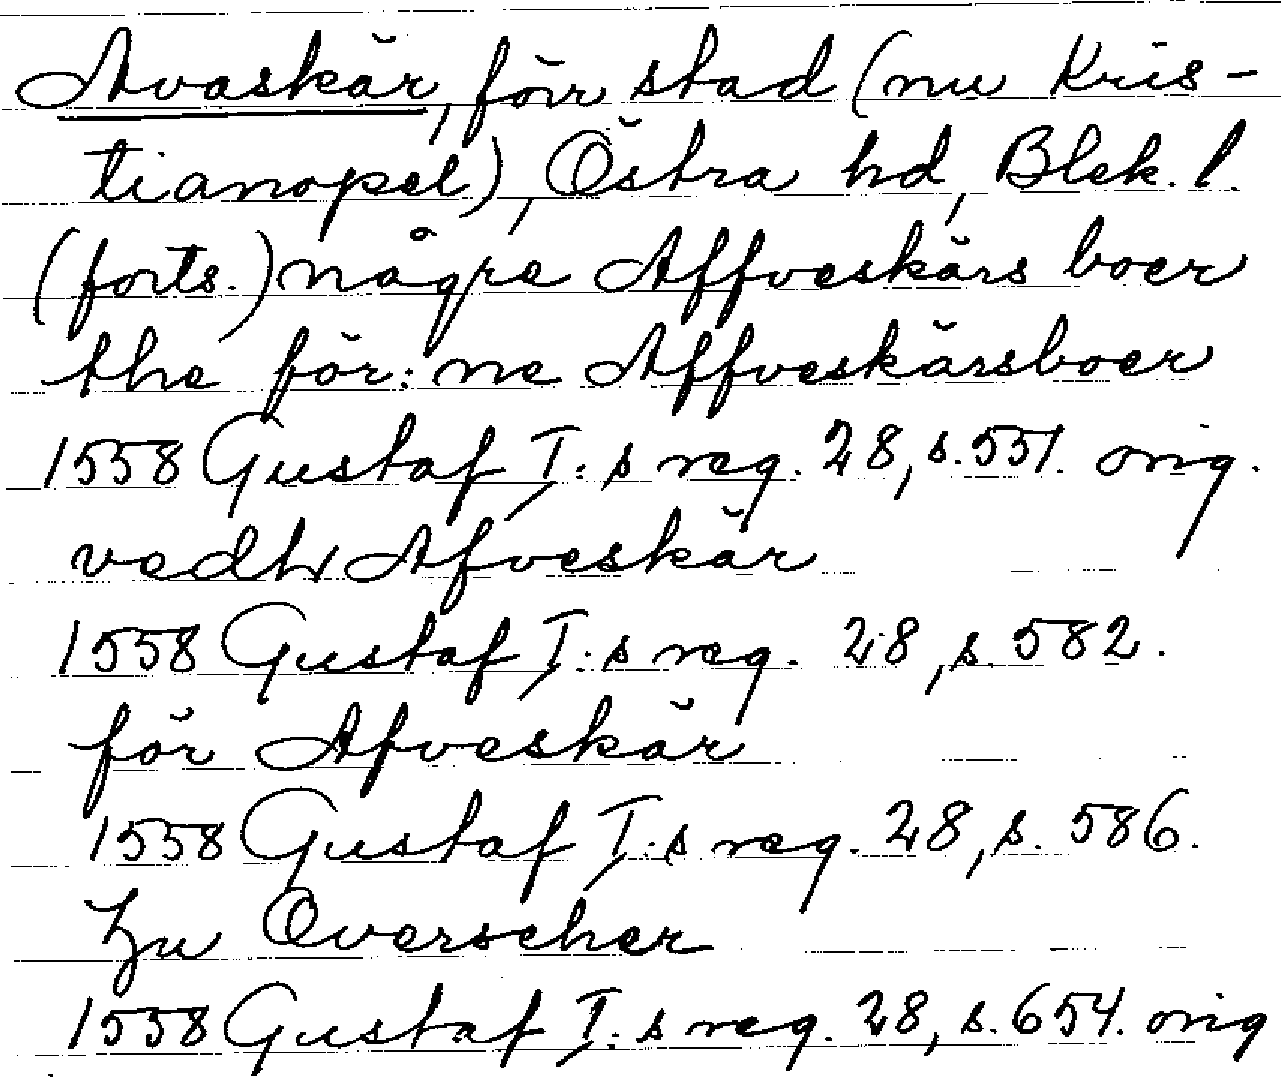 Avaskär, förr stad (nu Kris-
tianopel), Östra hd, Blek. l.
(forts.) någre Affveskärs boer
the för: ne Affveskärsboer
1558 Gustaf I: s reg. 28, s. 551. orig.
vedh Afveskär
1558 Gustaf I: s reg. 28, s. 582.
för Afveskär
1558 Gustaf I: s reg. 28, s. 586.
Zu Overscher
1558 Gustaf I: s reg. 28, s. 654. orig